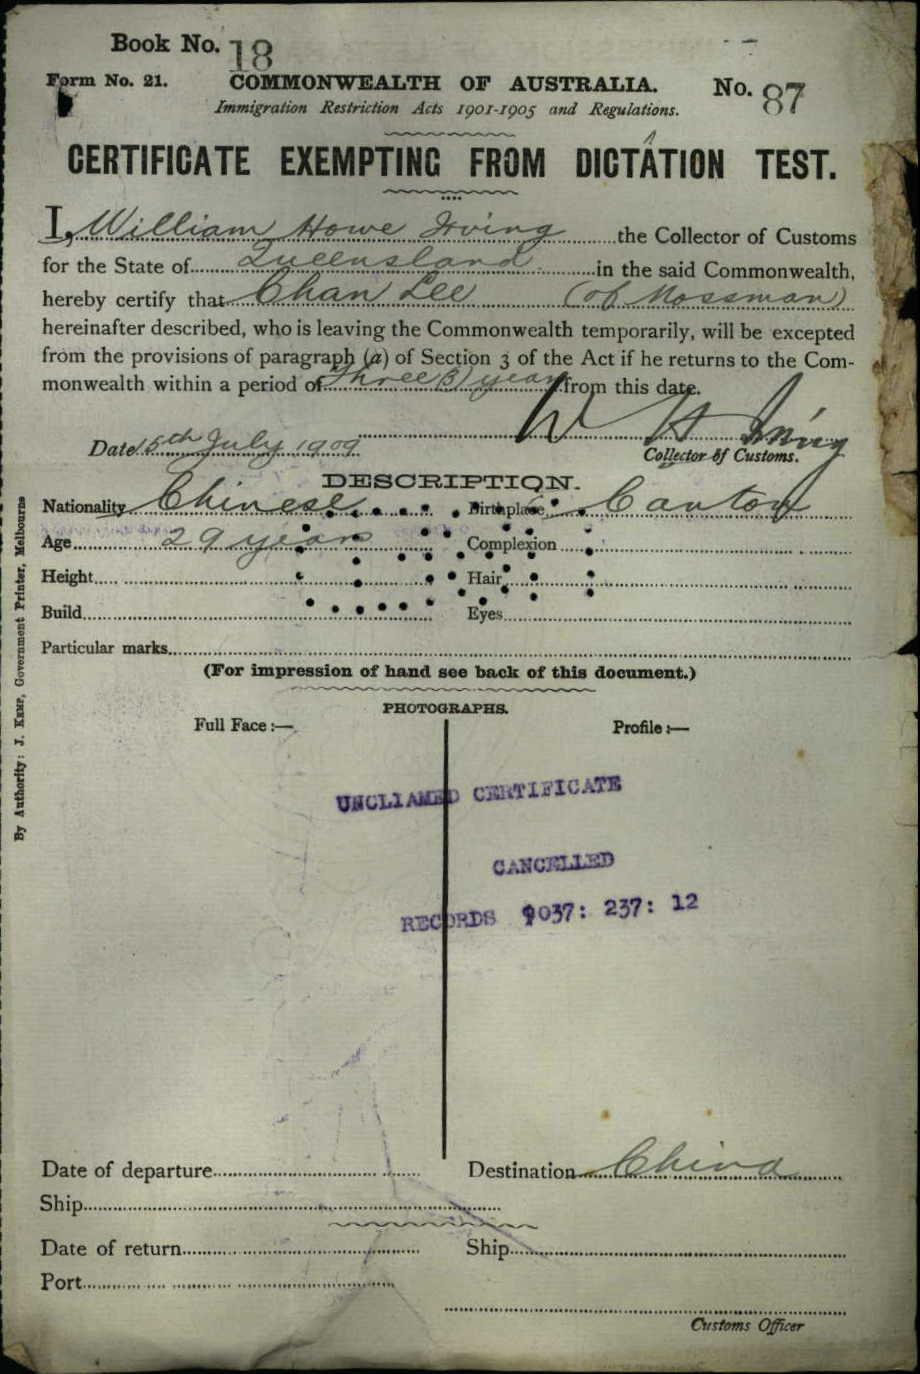 Book No. 18
Form No. 21. COMMONWEALTH OF AUSTRALIA. No. 87
Immigration Restriction Acts 1901-1905 and Regulations.
CERTIFICATE EXEMPTING FROM DICTATION TEST.
I, William Howe Irving the Collector of Customs
for the State of Queensland in the said Commonwealth,
hereby certify that Chan Lee (of Mossman)
hereinafter described, who is leaving the Commonwealth temporarily, will be excepted
from the provisions of paragraph (a) of Section 3 of the Act if he returns to the Com-
monwealth within a period of Three (3) years from this date.
W H Irving
Date 15th July 1909 Collector of Customs.
DESCRIPTION.
Nationality Chinese Birthplace Canton
Age 29 years Complexion
Height Hair
Build Eyes
Particular marks
(For impression of hand see back of this document.)
PHOTOGRAPHS.
Full Face:— Profile:—
UNCLIAMED CERTIFICATE
CANCELLED
RECORDS 9037: 237: 12
Date of departure Destination China
Ship
Date of return Ship
Port
Customs Officer
By Authority: J. Kemp, Government Printer, Melbourne